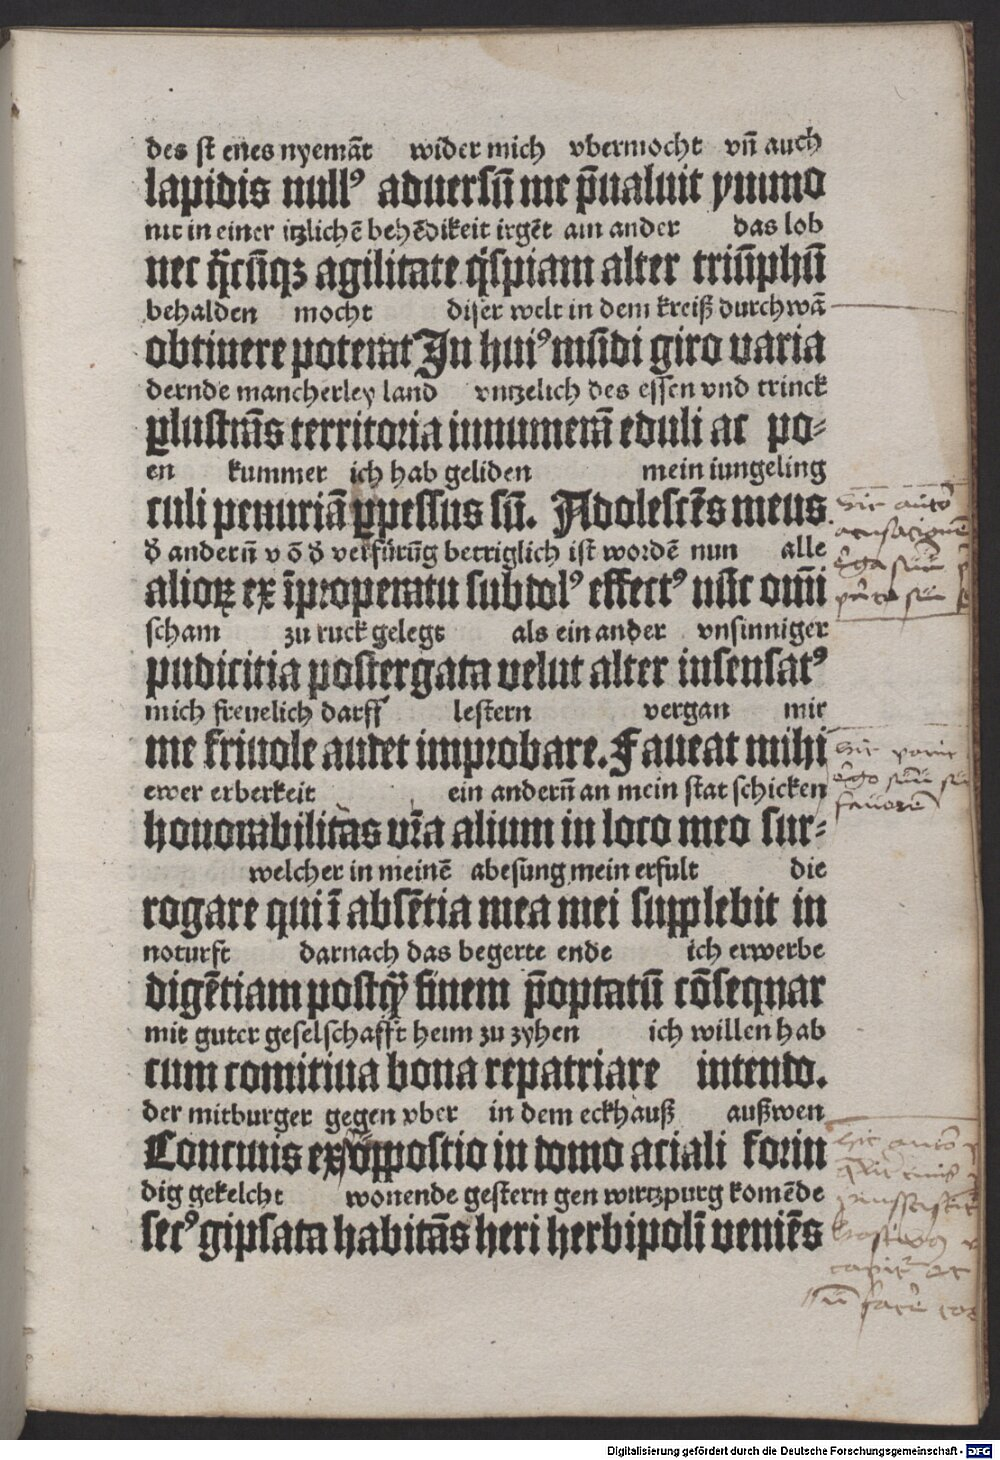 des st enes nyemāt wider mich vbermocht vn̄ auch
lapidis null⁹ aduersū me p̄ualuit ymmo
nit in einer itzlichē behēdikeit irgēt ain ander das lob
nec q̄cūqꝫ agilitate q̄spiam alter triūphū
behalden mocht diser welt in dem kreiß durchwā
obtinere poterat In hui⁹ mūdi giro varia
dernde mancherley land vntzelich des essen vnd trinck
ꝑlustrās territoria innumerā eduli ac po⸗
en kummer ich hab geliden mein iungeling
culi penuriā ꝑpessus sū. Adolescēs meus
d̕ andern̄ v ō d̕ verfürūg betriglich ist wordē nun alle
alioꝝ ex īproperatu subdol⁹ effect⁹ nūc om̄i
scham zu ruck gelegt als ein ander vnsinniger
pudicitia postergata velut alter insensat⁹
mich freuelich darff lestern vergan mir
me friuole audet improbare. Faueat mihi
ewer erberkeit ein andern̄ an mein stat schicken
honorabilitas vr̄a alium in loco meo sur⸗
welcher in meinē abesung mein erfult die
rogare qui ī absētia mea mei supplebit in
noturft darnach das begerte ende ich erwerbe
digētiam postqȝ finem p̄optatū cōsequar
mit guter geselschafft heim zu zyhen ich willen hab
cum comitiua bona repatriare intendo.
der mitburger gegen vber in dem eckhauß außwen
Conciuis ex opposito in domo aciali forin
dig gekelcht wonende gestern gen wirtzpurg komēde
sec⁹ gipsata habitās heri herbipolī veniēs
Hic
Hic
fauorē
Hic
Digitalisierung gefördert durch die Deutsche Forschungsgemeinschaft - DFG